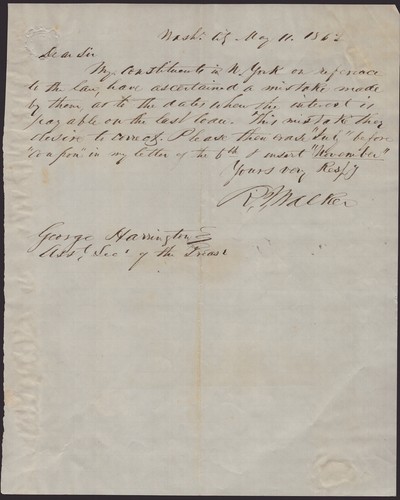 Wash: City May 11. 186
Dear Sir
My constituents in N. York on reference
to the law, have ascertained a mistake made
by them, as to the dates when the interest is
payable on the last loan. This mistake they
desire to correct. Please then erase "July" before
"coupon" in my letter of the 6th & insert "November"
Yours very Resfy
R. J. Walker
George Harrington
Asst. Secy of the Treasy